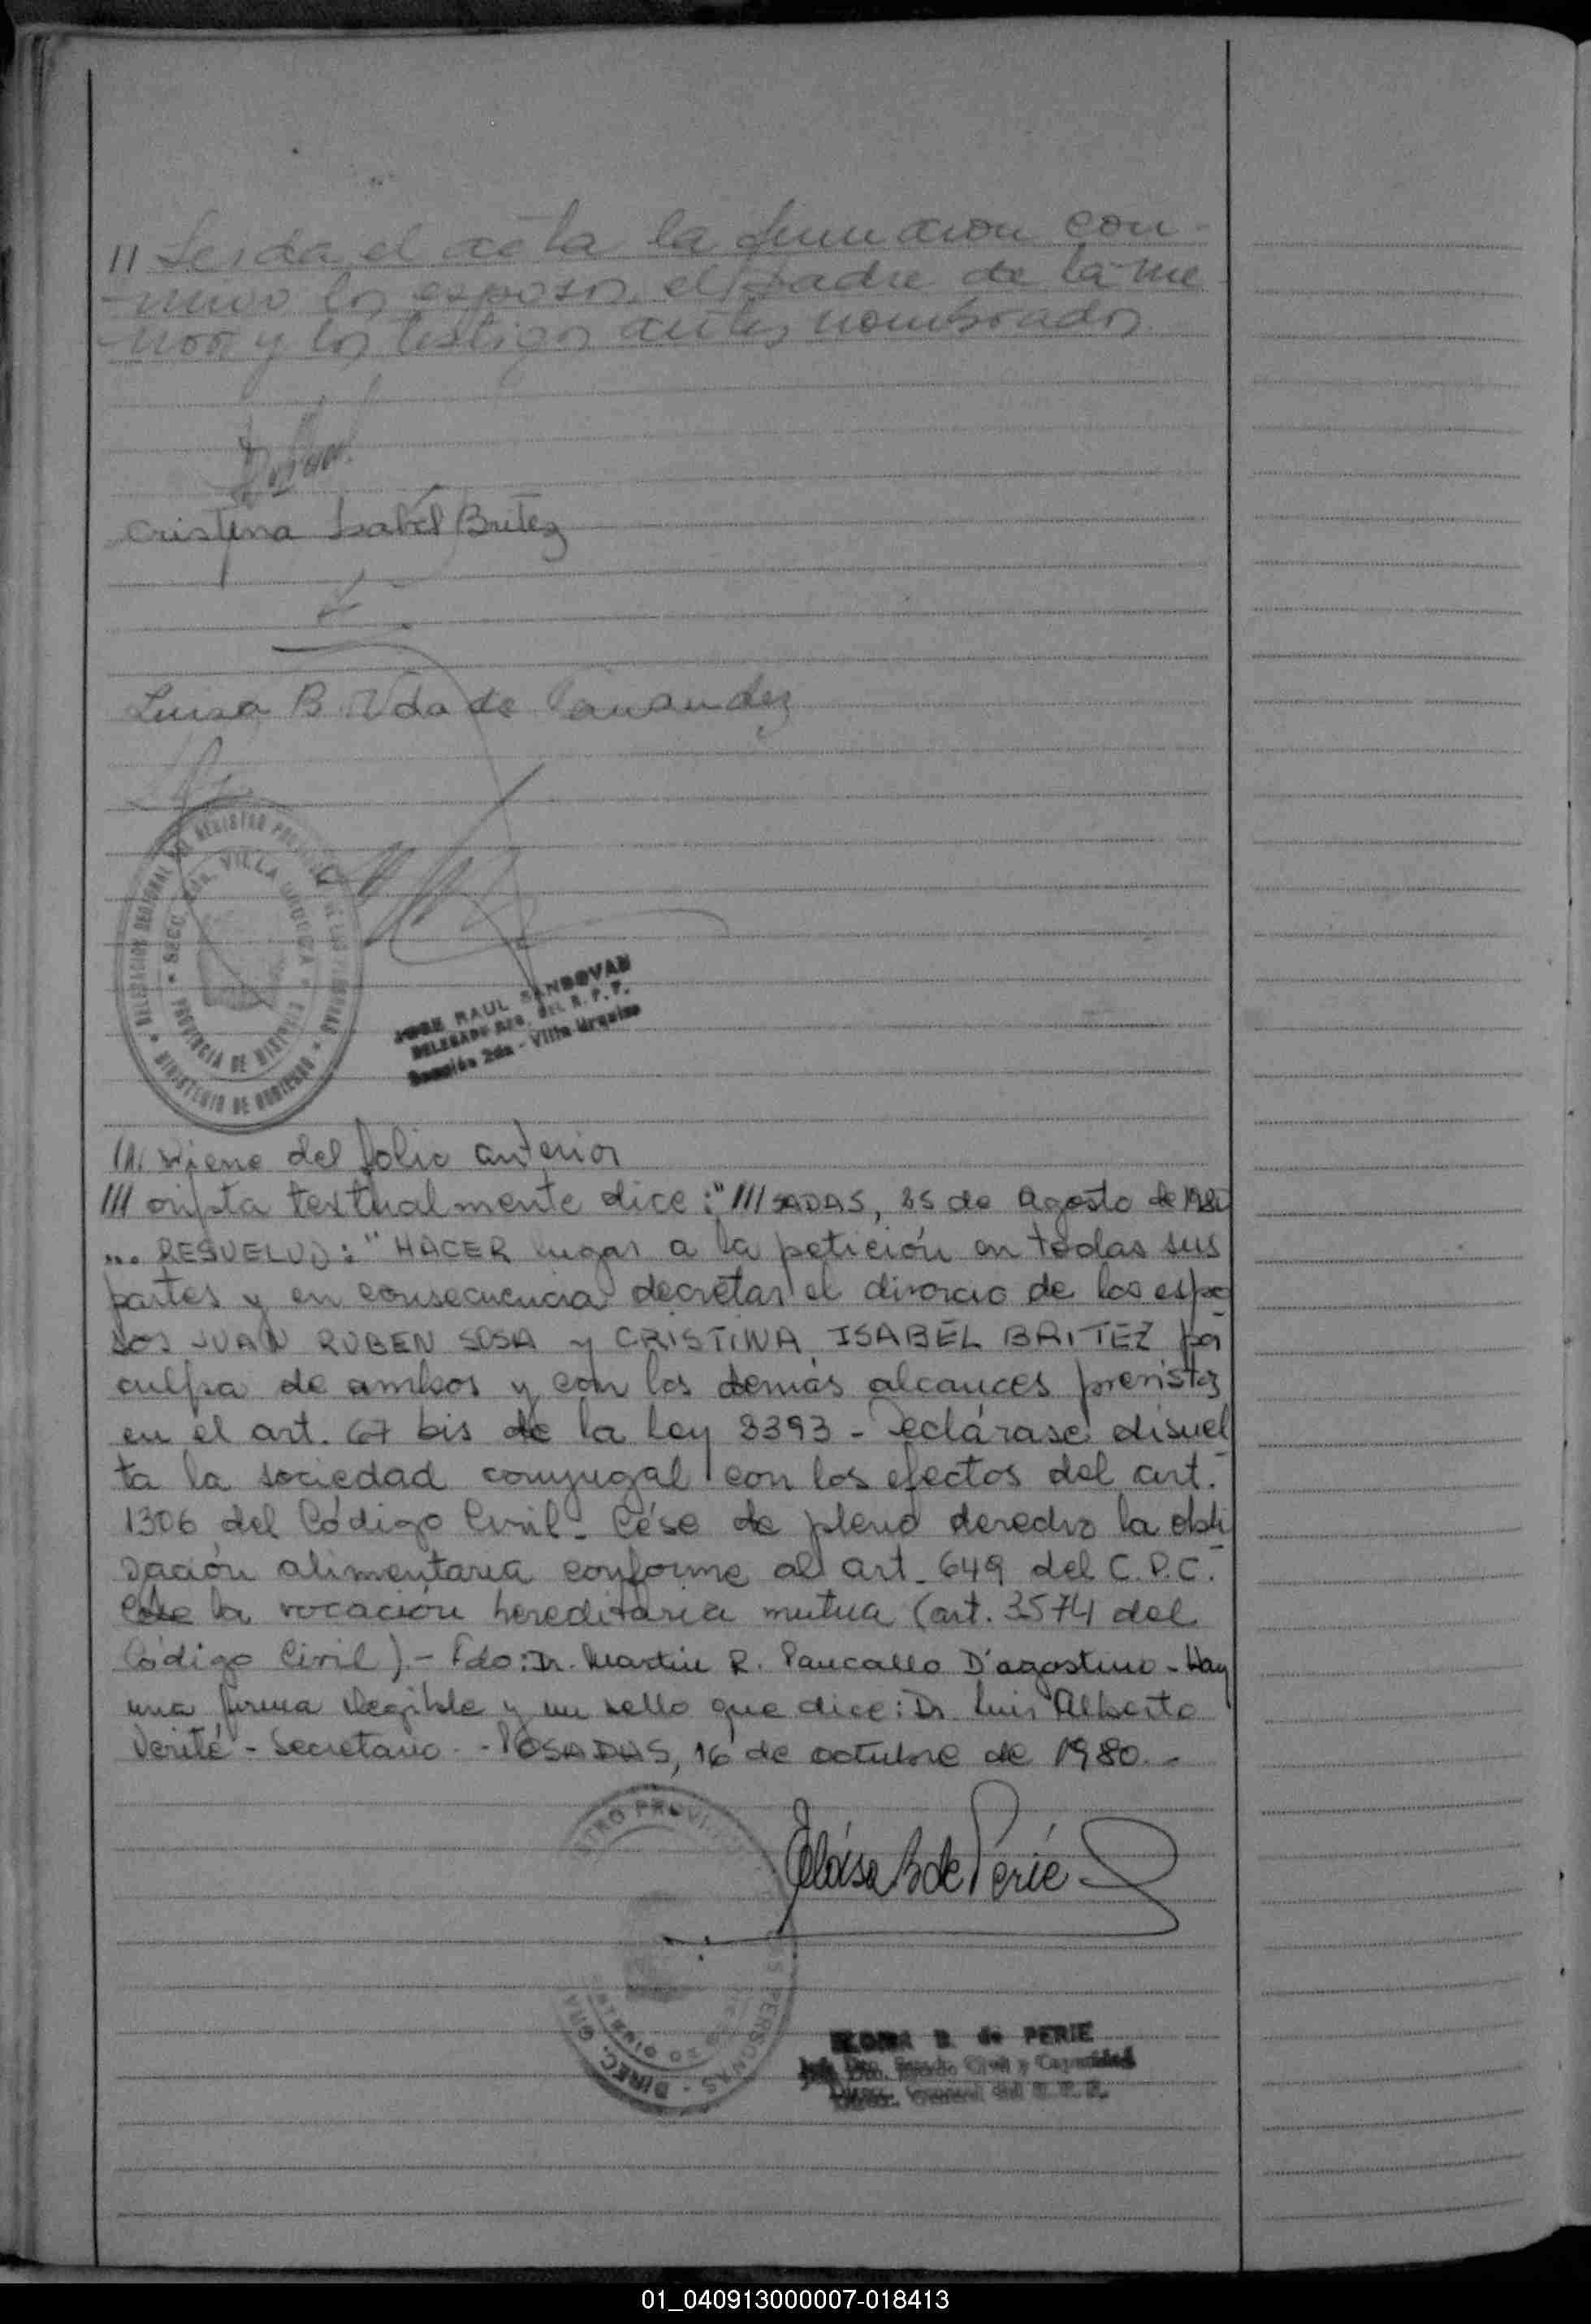 11 Leida el acta la firmaron con-
migo los esposos, el padre de la me
nor y los testigos antes nombrados.
Cristina Isabel Britez
Luisa B. Vda de
DELEGACION REGIONAL DEL REGISTRO PROVINCIAL DE LAS PERSONAS
SECC. 2da. VILLA URQUIZA
PROVINCIA DE MISIONES
MINISTERIO DE GOBIERNO
JOSE RAUL SANDOVAL
DELEGADO REG. DEL R. P. P.
Sección 2da - Villa Urquiza
/// viene del folio anterior
/// cripta textualmente dice: "///SADAS, 25 de Agosto de 1980
... RESUELVO: "HACER lugar a la petición en todas sus
partes y en consecuencia decretar el divorcio de los espo
sos JUAN RUBEN SOSA y CRISTINA ISABEL BRITEZ por
culpa de ambos y con los demás alcances previstos
en el art. 67 bis de la Ley 2393 - Declárase disuel
ta la sociedad conyugal con los efectos del art.
1306 del Código Civil - Cése de pleno derecho la obli
gación alimentaria conforme al art. 649 del C.P.C.
Cese la vocación hereditaria mutua (art. 3574 del
Código Civil).- Fdo: Dr. Martin R. Paucallo D'agostino - Hay
una firma ilegible y un sello que dice: Dr. Luis Alberto
Verité - Secretario - POSADAS, 16 de octubre de 1980.-
Eloisa B de Perié
ELOISA B. de PERIE
Jefe Dto. Estado Civil y Capacidad
Direc. General del R. P. P.
01_040913000007-018413